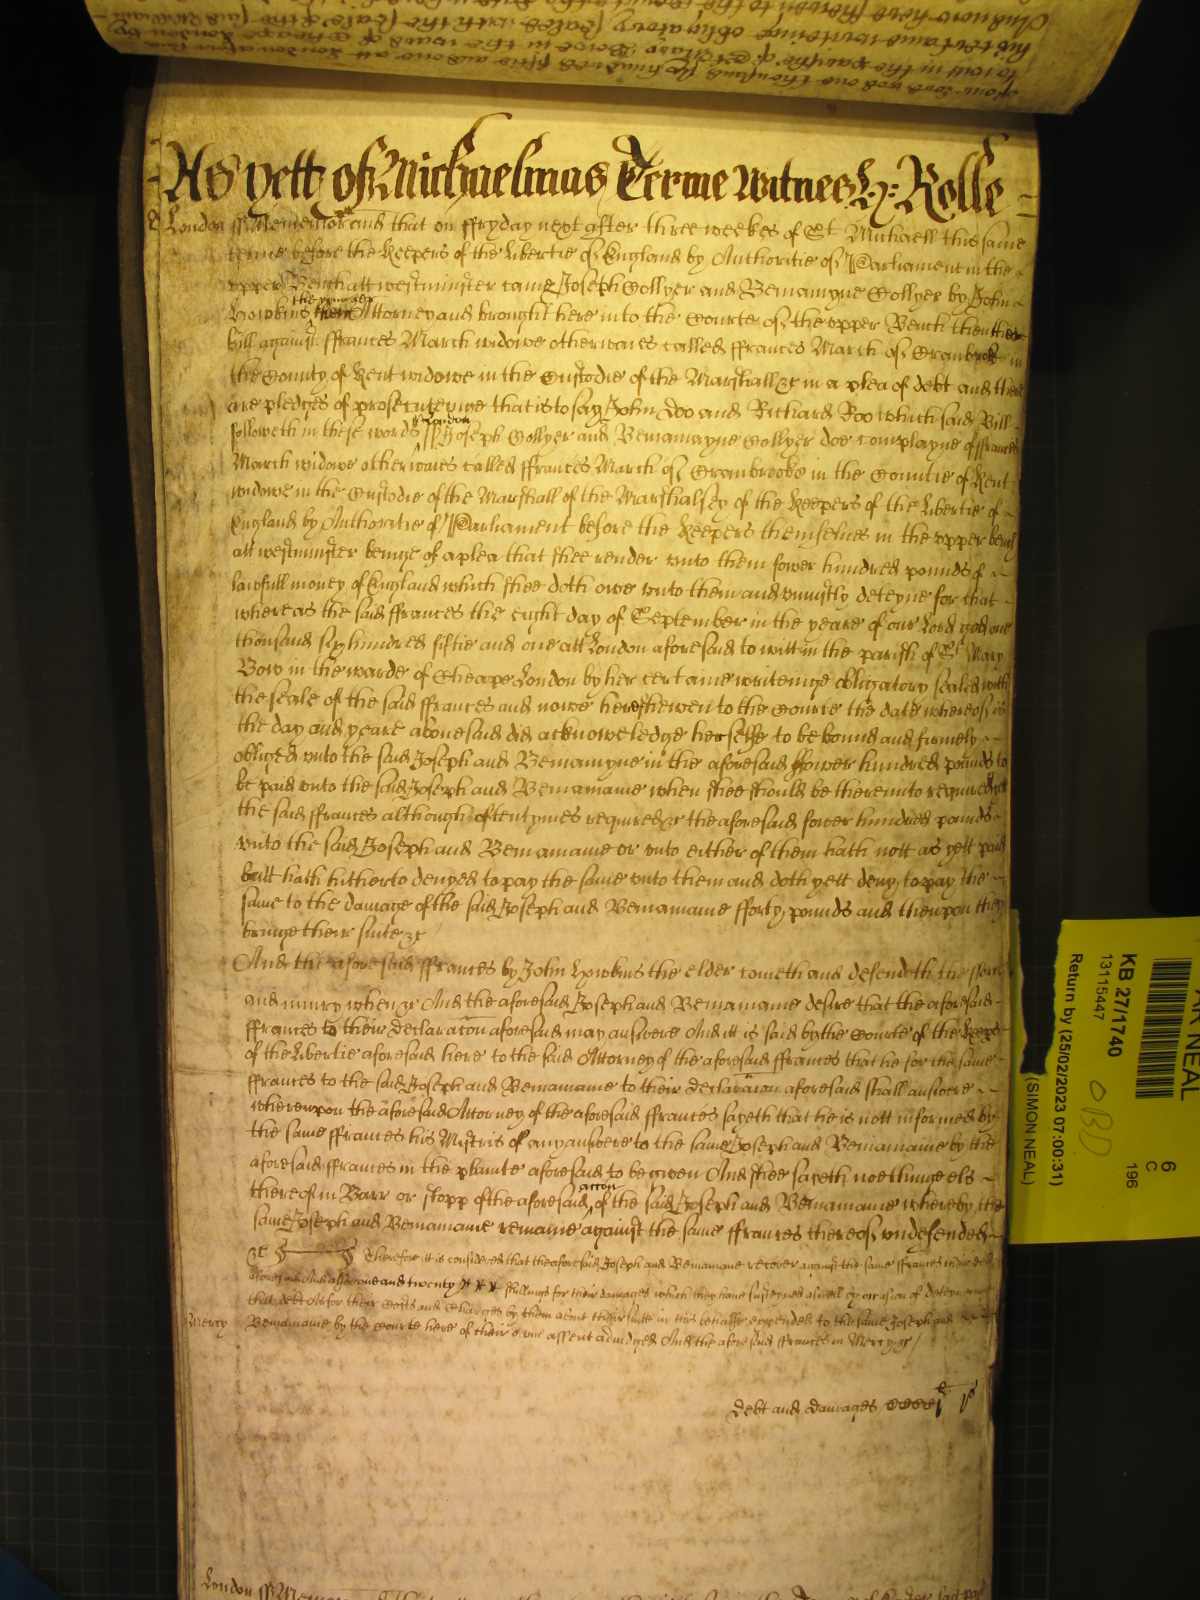 As yett of Michaelmas Terme Witnes H: Rolle
London ss Memorand that on ffryday next after three weekes of St Michaell this same
terme before the Keepers of the libertie of England by Authoritie of Parliament in the
upper Bench att westminster came Joseph Collyer and Beniamyne Collyer by John
Howkins the younger their Attorney and brought here into the Courte of the upper Bench then their
bill against ffrances March widowe otherwaies called ffrances March of Cranbrok in
the County of Kent widowe in the Custodie of the Marshall &c in a plea of debt and there
are pledges of prosecuteinge that is to say John Doo and Richard Roo which said Bill
followeth in these words ss London ss Joseph Collyer and Beniamayne Collyer doe complayne of ffrances
March widowe otherwaies called ffrances March of Cranbrooke in the Countie of Kent
widowe in the Custodie of the Marshall of the Marshalsey of the Keepers of the libertie of
England by Authoritie of Parliament before the Keepers themselves in the upper bench
att westminster beinge of a plea that shee render unto them fower hundred pounds of
lawfull money of England which shee doth owe unto them and uniustly deteyne for that
whereas the said ffrances the eight day of September in the yeare of our Lord god one
thousand six hundred fiftie and one att London aforesaid to witt in the parish of St Mary
Bow in the warde of Cheape London by her certaine writeinge obligatory sealed with
the seale of the said ffrances and nowe here shewen to the Courte the date whereof is
the day and yeare abovesaid did acknowledge herselfe to be bound and firmely
obliged unto the said Joseph and Beniamyne in the aforesaid ffower hundred pounds to
be paid unto the said Joseph and Beniamaine when shee should be thereunto required yett
the said ffrances although oftentymes required &c the aforesaid fower hundred pounds
unto the said Joseph and Beniamaine or unto either of them hath nott as yett paid
butt hath hitherto denyed to pay the same unto them and doth yett deny to pay the
same to the damage of the said Joseph and Beniamaine fforty pounds and thereupon they
bringe their suite &c
And the aforesaid ffrances by John Howkins the elder cometh and defendeth the force
and iniury when &c And the aforesaid Joseph and Beniamaine desire that the aforesaid
ffrances to their declaraton aforesaid may answere And itt is said by the Courte of the Keeps
of the libertie aforesaid here to the said Attorney of the aforesaid ffrances that he for the same
ffrances to the said Joseph and Beniamaine to their declaraton aforesaid shall answere
whereupon the aforesaid Attorney of the aforesaid ffrances sayeth that he is nott informed by
the same ffrances his Mistris of any answere to the same Joseph and Beniamaine by the
aforesaid ffrances in the plainte aforesaid to be given And shee sayeth noethinge els
thereof in Barr or stopp of the aforesaid accon of the said Joseph and Beniamaine whereby the
same Joseph and Beniamaine remaine against the same ffrances thereof undefended
&c Therefore it is considered that the aforesaid Joseph and Beniamaine recover against the same ffrances their debt
aforesaid And alsoe one and twenty shillings for their damages which they have susteyned aswell by occasion of deteyninge
that debt As for their Costs and Charges by them about their suite in this behalfe expended to the same Joseph and
Mercy Beniamaine by the Courte here of their owne assent adiudged And the aforesaid ffrances in Mercy &c
debt and damages
London ss
KB 27/1740
13115447
Return by (25/02/2023 07:00:31)
(SIMON NEAL)
NEAL
6
C
196
OBD